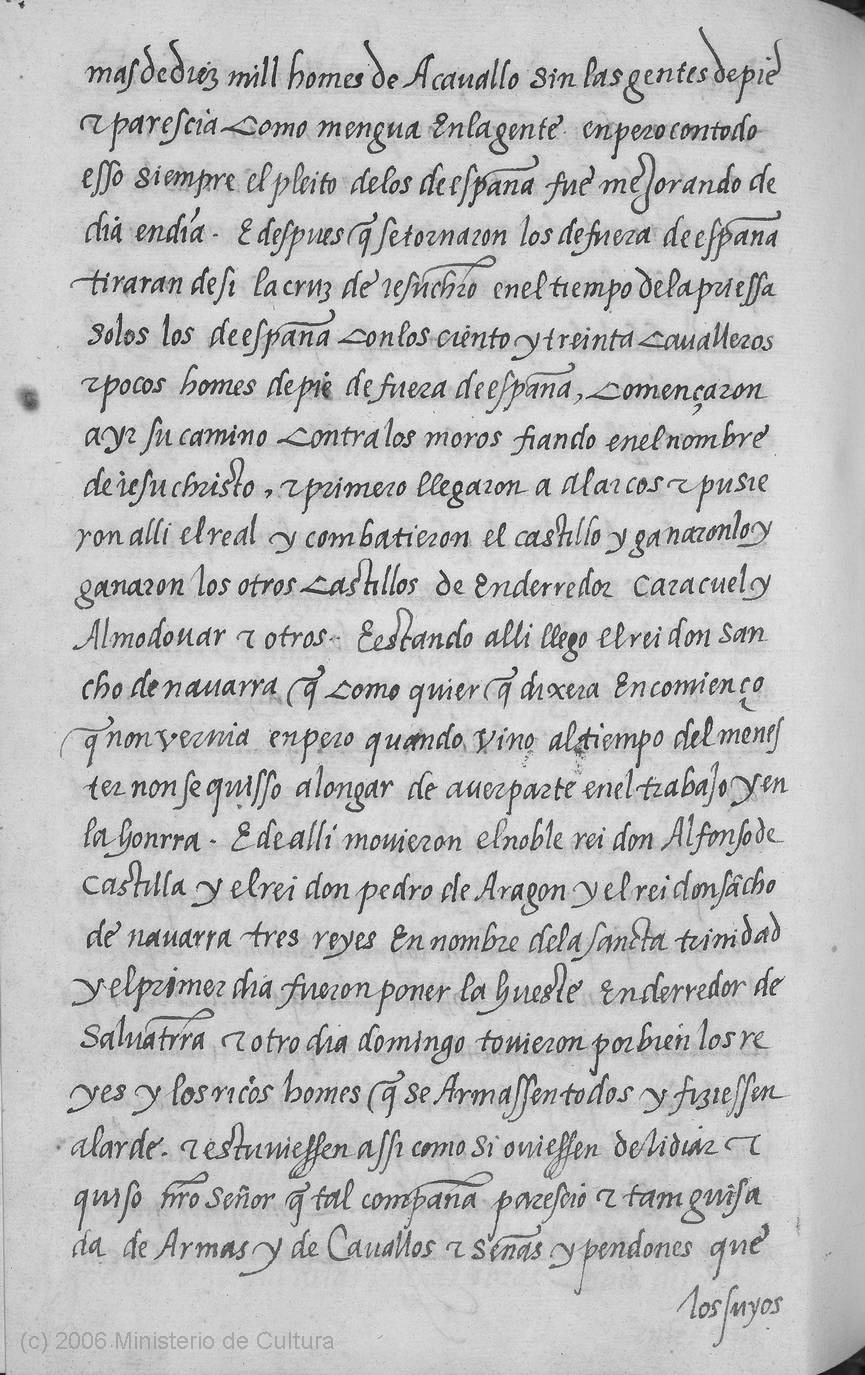 mas de diez mill homes de Acauallo sin las gentes de pie
τ parescia como mengua Enla gente. enpero con todo
esso siempre el pleito delos de españa fue mejorando de
dia en dia. E despues q̃ se tornaron los de fuera de españa
tiraran de si la cruz de iesuchr̃o en el tiempo dela priessa
solos los de españa con los ciento y treinta cavalleros
τ pocos homes de pie de fuera de españa, començaron
a yr su camino contra los moros fiando en el nombre
de iesu christo, τ primero llegaron a alarcos τ pusie
ron alli el real y combatieron el castillo y ganaronlo y
ganaron los otros castillos de Enderredor Caracuel y
Almodouar τ otros. E estando alli llego el rei don san
cho de nauarra q̃ como quier q̃ dixera En comienço
q̃ non vernia enpero quando vino al tiempo del menes
ter non se quisso alongar de aver parte en el trabajo y en
la honrra. E de alli mouieron el noble rei don Alfonso de
Castilla y el rei don pedro de Aragon y el rei don sãcho
de nauarra tres reyes En nombre dela sancta trinidad
y el primer dia fueron poner la hueste Enderredor de
Saluatr̃ra τ otro dia domingo touieron por bien los re
yes y los ricos homes q̃ se Armassen todos y fiziessen
alarde. τ estuuiessen assi como si ouiessen de lidiar τ
quiso nr̃o Señor q̃ tal compaña parescio τ tam guisa
da de Armas y de Cauallos τ señas y pendones que
los suyos
(c) 2006 Ministerio de Cultura